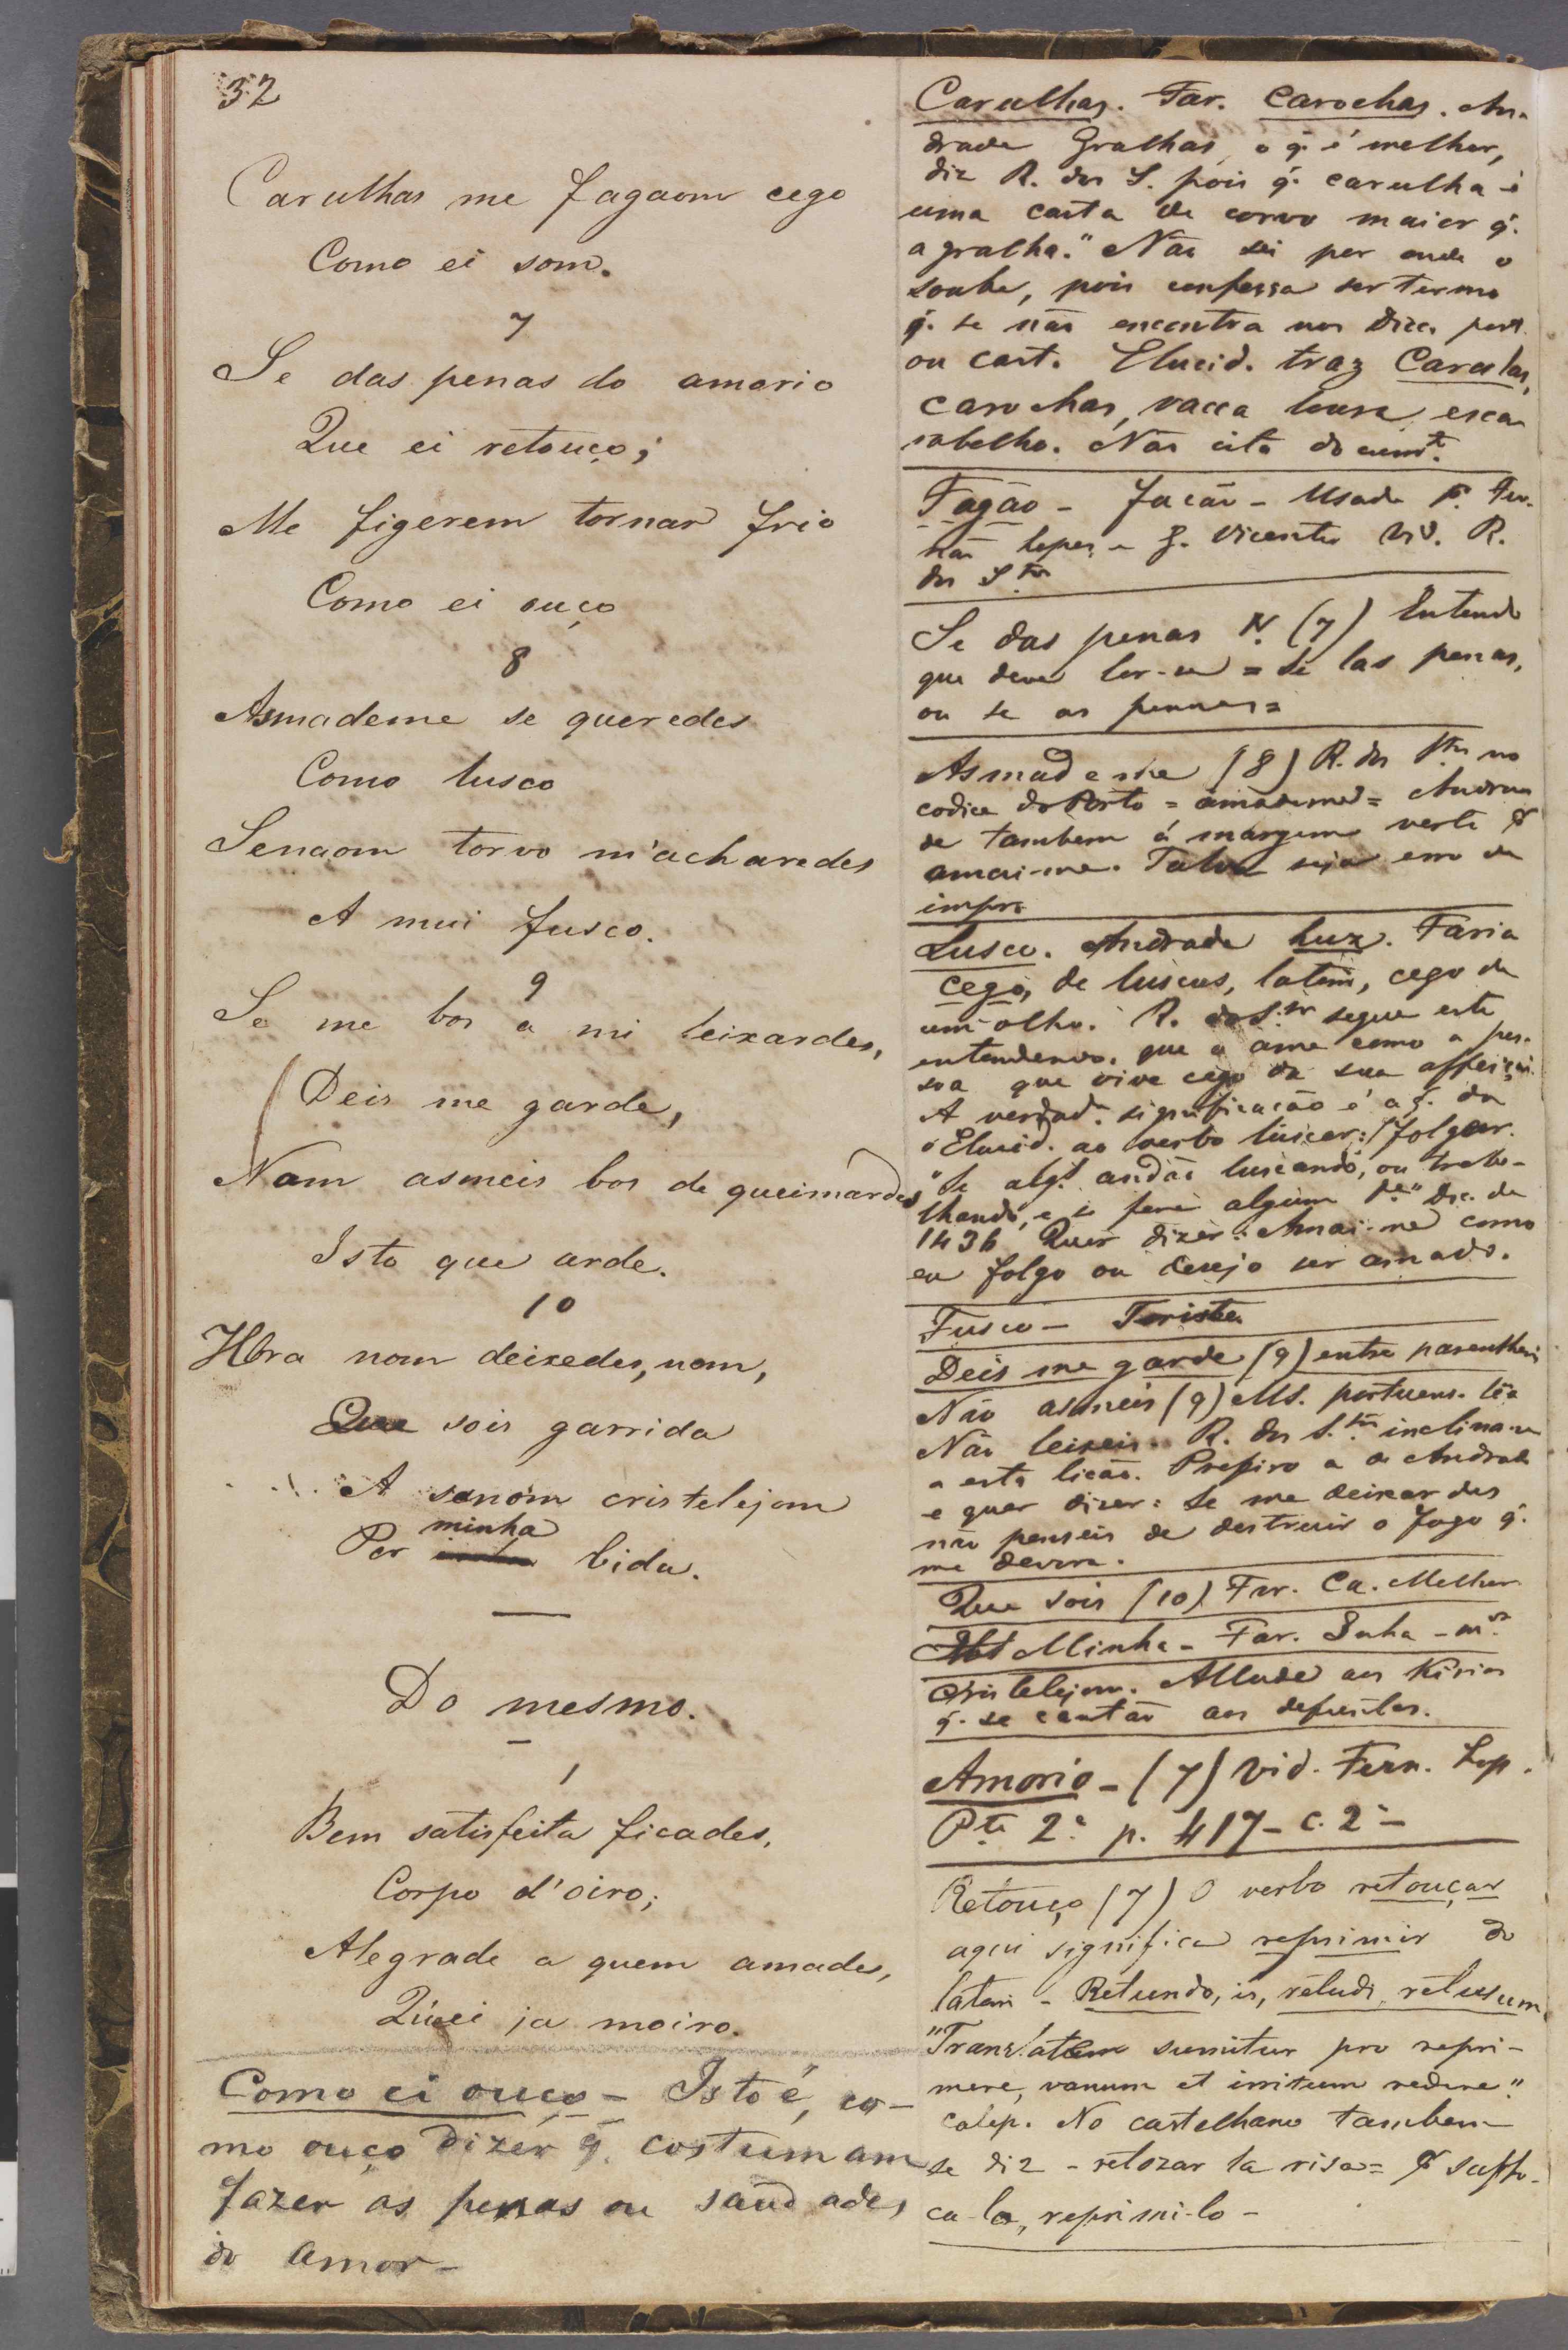 32
Carulhas me fagaom cego
Como ei som.
7
Se das penas do amorio
Que ei retouço;
Me figerem tornar frio
Como ei ouço
8
Asmademe se queredes
Como lusco
Senaom torvo m'acharedes
A mui fusco.
9
Se me bos a mi leixardes,
(Deis me garde,
Nam asmeis bos de queimardes
Isto que arde.
10
Hora nom deixedes, nom,
Que sois garrida
A senóm cristelejom
minha
Per bida.
Do mesmo.
1
Bem satisfeita ficades,
Corpo d'oiro;
Alegrade a quem amades,
Qúei ja moiro.
Como ei ouço - Isto é, co-
mo ouço dizer q̃. costumam
fazer as penas ou saudades
do amor -
Carulhas. Far. Carochas. An-
drade Gralhas, o q̃. é melhor,
diz R. dos S. pois q̃. carulha é
uma casta de corvo maior q̃.
a gralha." Não sei por onde o
soube, pois confessa ser termo
q̃. se não encontra nos Dicc. port.
ou cast. Elucid. traz Carulas,
carochas, vacca loura, esca-
rabelho. Não cita docum.to
Fagão - facão - Usado p. Fer-
não Lopes - G. Vicente Vid. R.
dos S.tos
Se das penas N. (7) Entendo
que deve ler-se = Se las penas,
ou se as pennas =
Asmademe (8) R. dos S.tos no
codice do Porto = amademe = Andra
de tambem á margem verte
amai-me. Talvez seja erro de
impr.
Lusco. Andrade luz. Faria
cego, de luscus, latim, cego de
um olho. R. dos S.tos segue este
entendendo. que o ame como a pes-
soa que vive cego da sua affeição.
A verdad.a significação é a q̃. dá
o Elucid. ao verbo luscar: folgar.
"Se alg. andão luscando, ou traba-
lhando, e se fere algum d." Doc. de
1436 Quer dizer: Amai-me como
eu folgo ou desejo ser amado.
Fusco - Triste
Deis me garde (9) entre parenthesis
Não asmeis (9) Ms. portuens. lêa
Não leixeis. R. dos S.tos inclina-se
a esta lição. Prefiro a de Andrade
e quer dizer: Se me deixardes
não penseis de destruir o fogo q̃.
me devora.
Que sois (10) Far. Ca. Melhor
Minha - Far. Inha - m.a
Cristelejom. Allude aos Kirios
q̃. se cantão aos defuntos.
Amorio - (7) Vid. Fern. Lop.
P.te 2.a p. 417 - c. 2.a -
Retouço (7) O verbo retouçar
aqui significa reprimir do
latim - Retundo, is, retudi, retusum
"Translatum sumitur pro repri-
mere, vanum et irritum redere".
Calep. No castelhano tambem
se diz - retozar la risa = suffo-
ca-la, reprimi-lo -